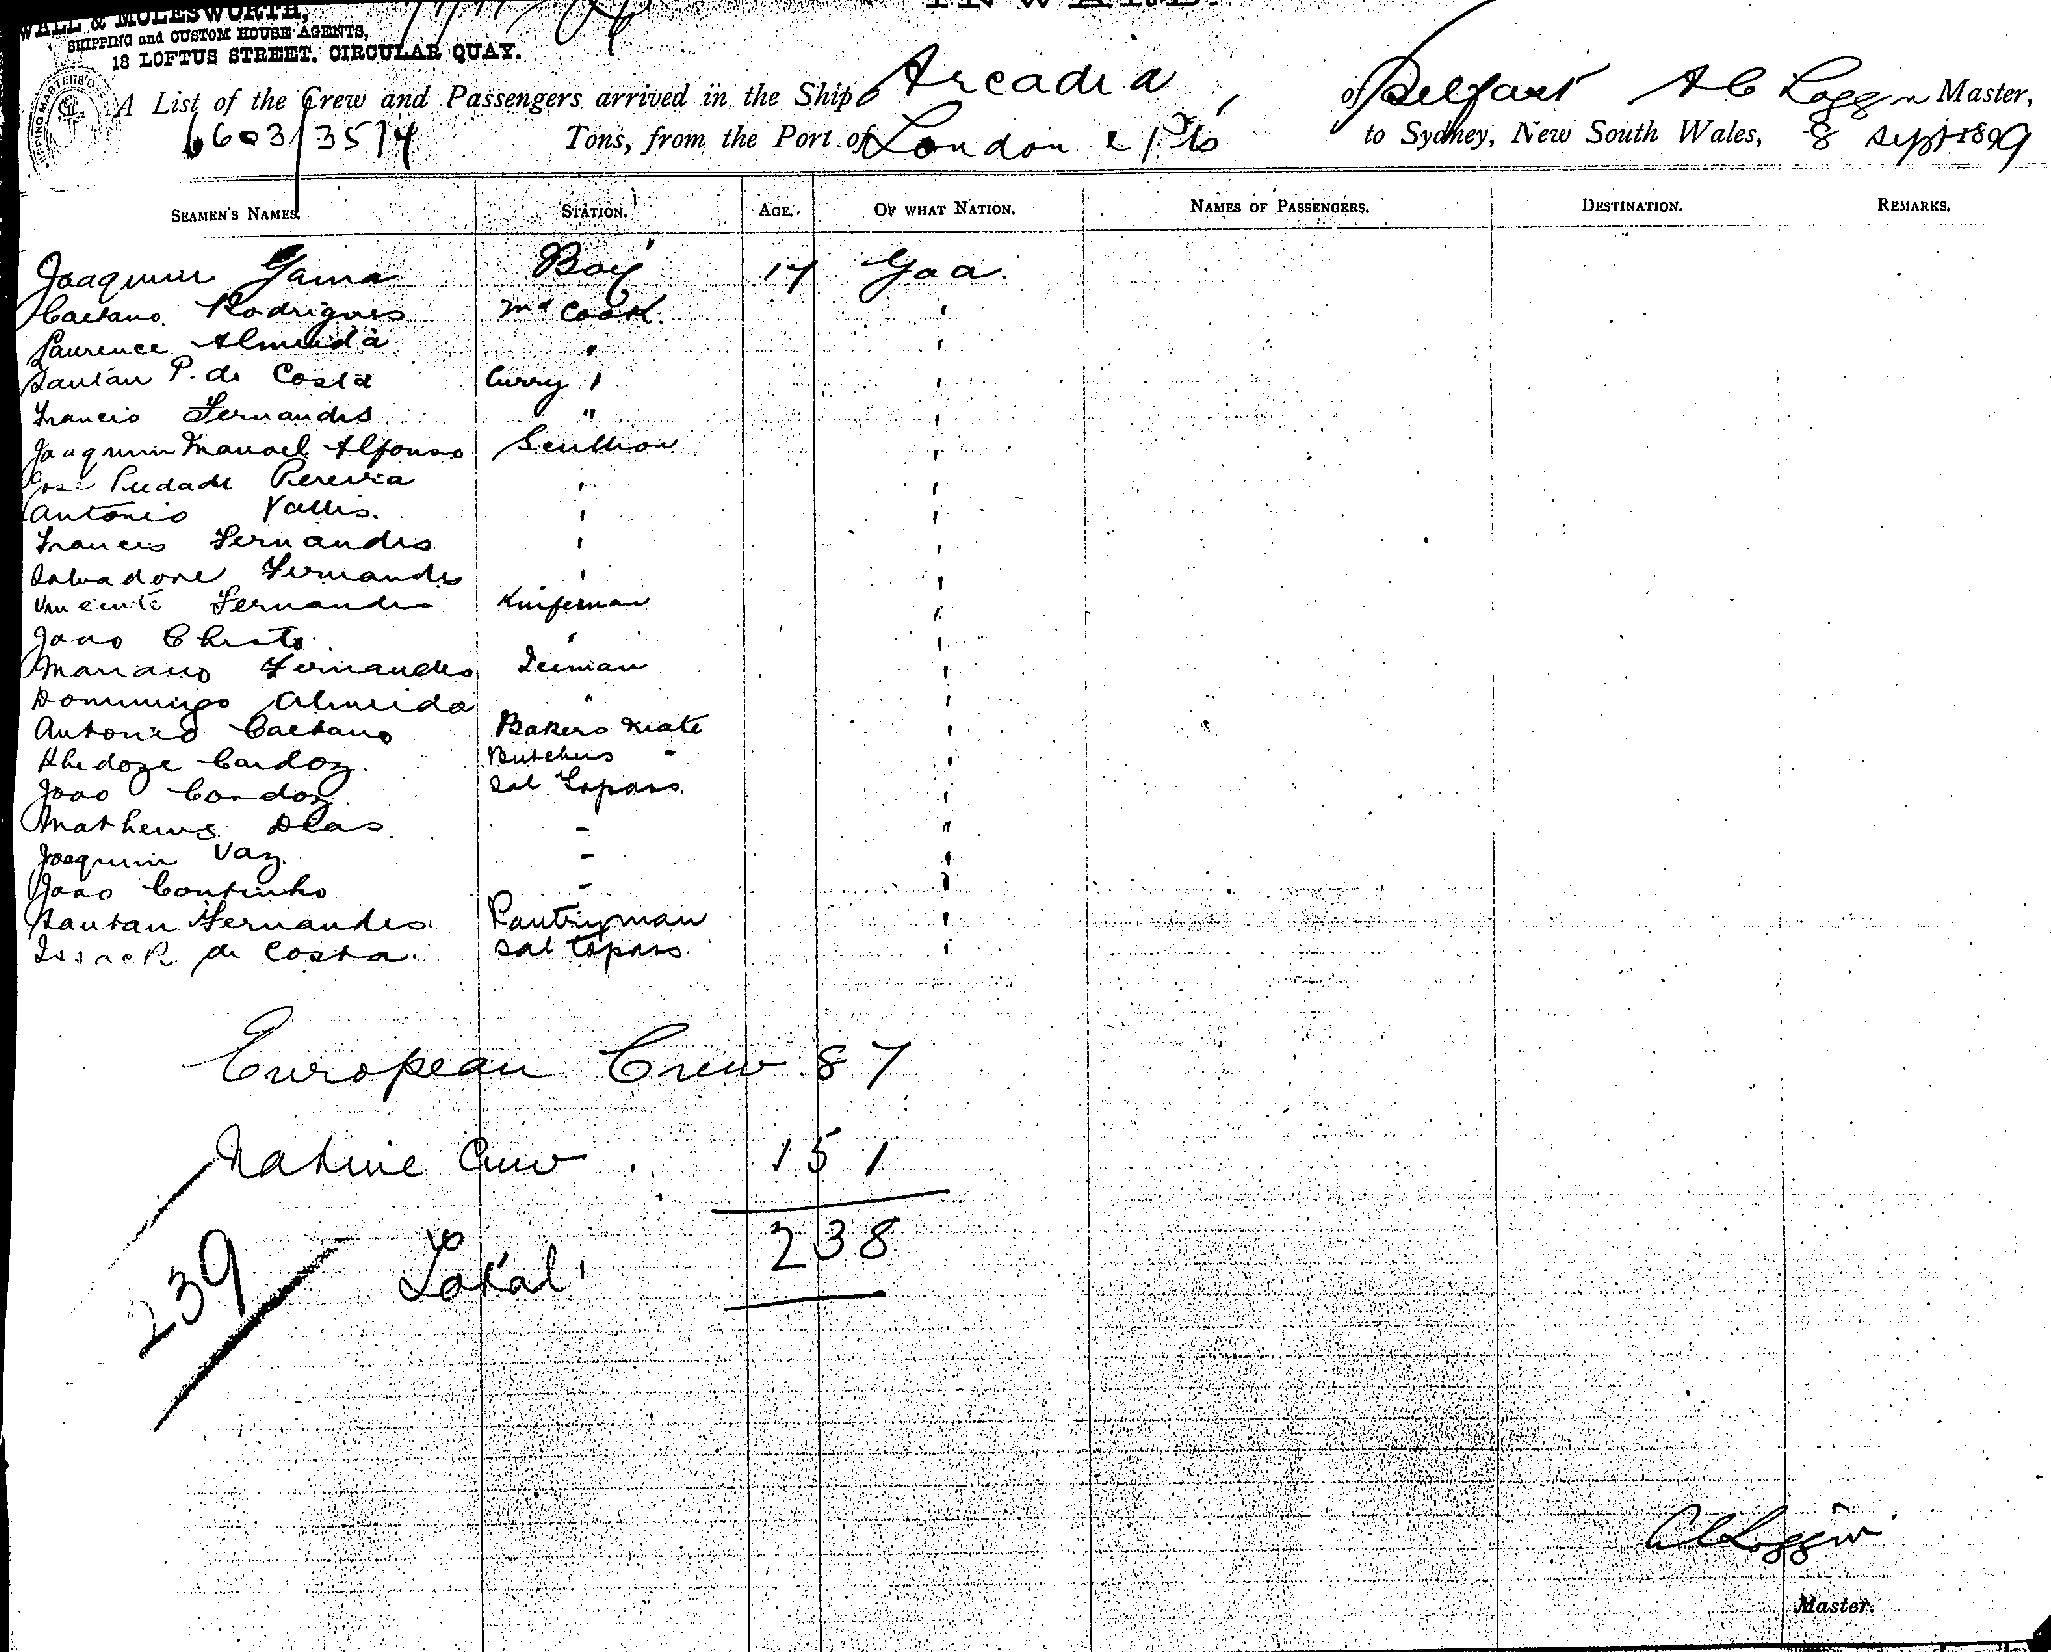 WALL & MOLESWORTH,
SHIPPING and CUSTOM HOUSE AGENTS,
18 LOFTUS STREET, CIRCULAR QUAY.
INWARD.
A List of the Crew and Passengers arrived in the Ship Arcadia, of Belfast A C Loggin Master,
6603/3514 Tons, from the Port of London & Pts to Sydney, New South Wales, 8 Sept 1899
SEAMEN'S NAMES. STATION. AGE. OF WHAT NATION. NAMES OF PASSENGERS. DESTINATION. REMARKS.
Joaquim Gama Boy 17 Goa
Caetano Rodrigues Ms Cook "
Laurence Almeida " "
Santan P. de Costa Curry " "
Francis Fernandes " "
Joaquim Manoel Alfonso Scullion "
Jose Piedade Pereira " "
Antonio Vallis. " "
Francis Fernandes " "
Salvadore Fernandes " "
Vincente Fernandes Knifeman "
Joao Christo " "
Mariano Fernandes "
Dommingo Almeida " "
Antonio Caetano Bakers Mate "
Cardoz. Butchers " "
Joao Cardoz Sal Topass "
Mathews Dias " "
Joaquim Vaz. " "
Joao Coutinho " "
Santan Fernandes Pantryman "
Issack de Costa. Sal Topass "
European Crew 87
Native Crew 151
Total 238
239
A C Loggin
Master.